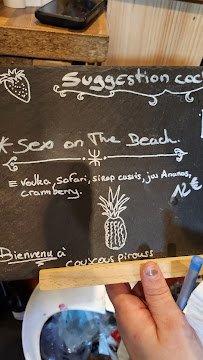 Suggestion coc
* Sex on The Beach.
= vodka, Safari, sirop cassis, jus Ananas,
crammberry.
12€
Bienvenu à
couscous pirouss